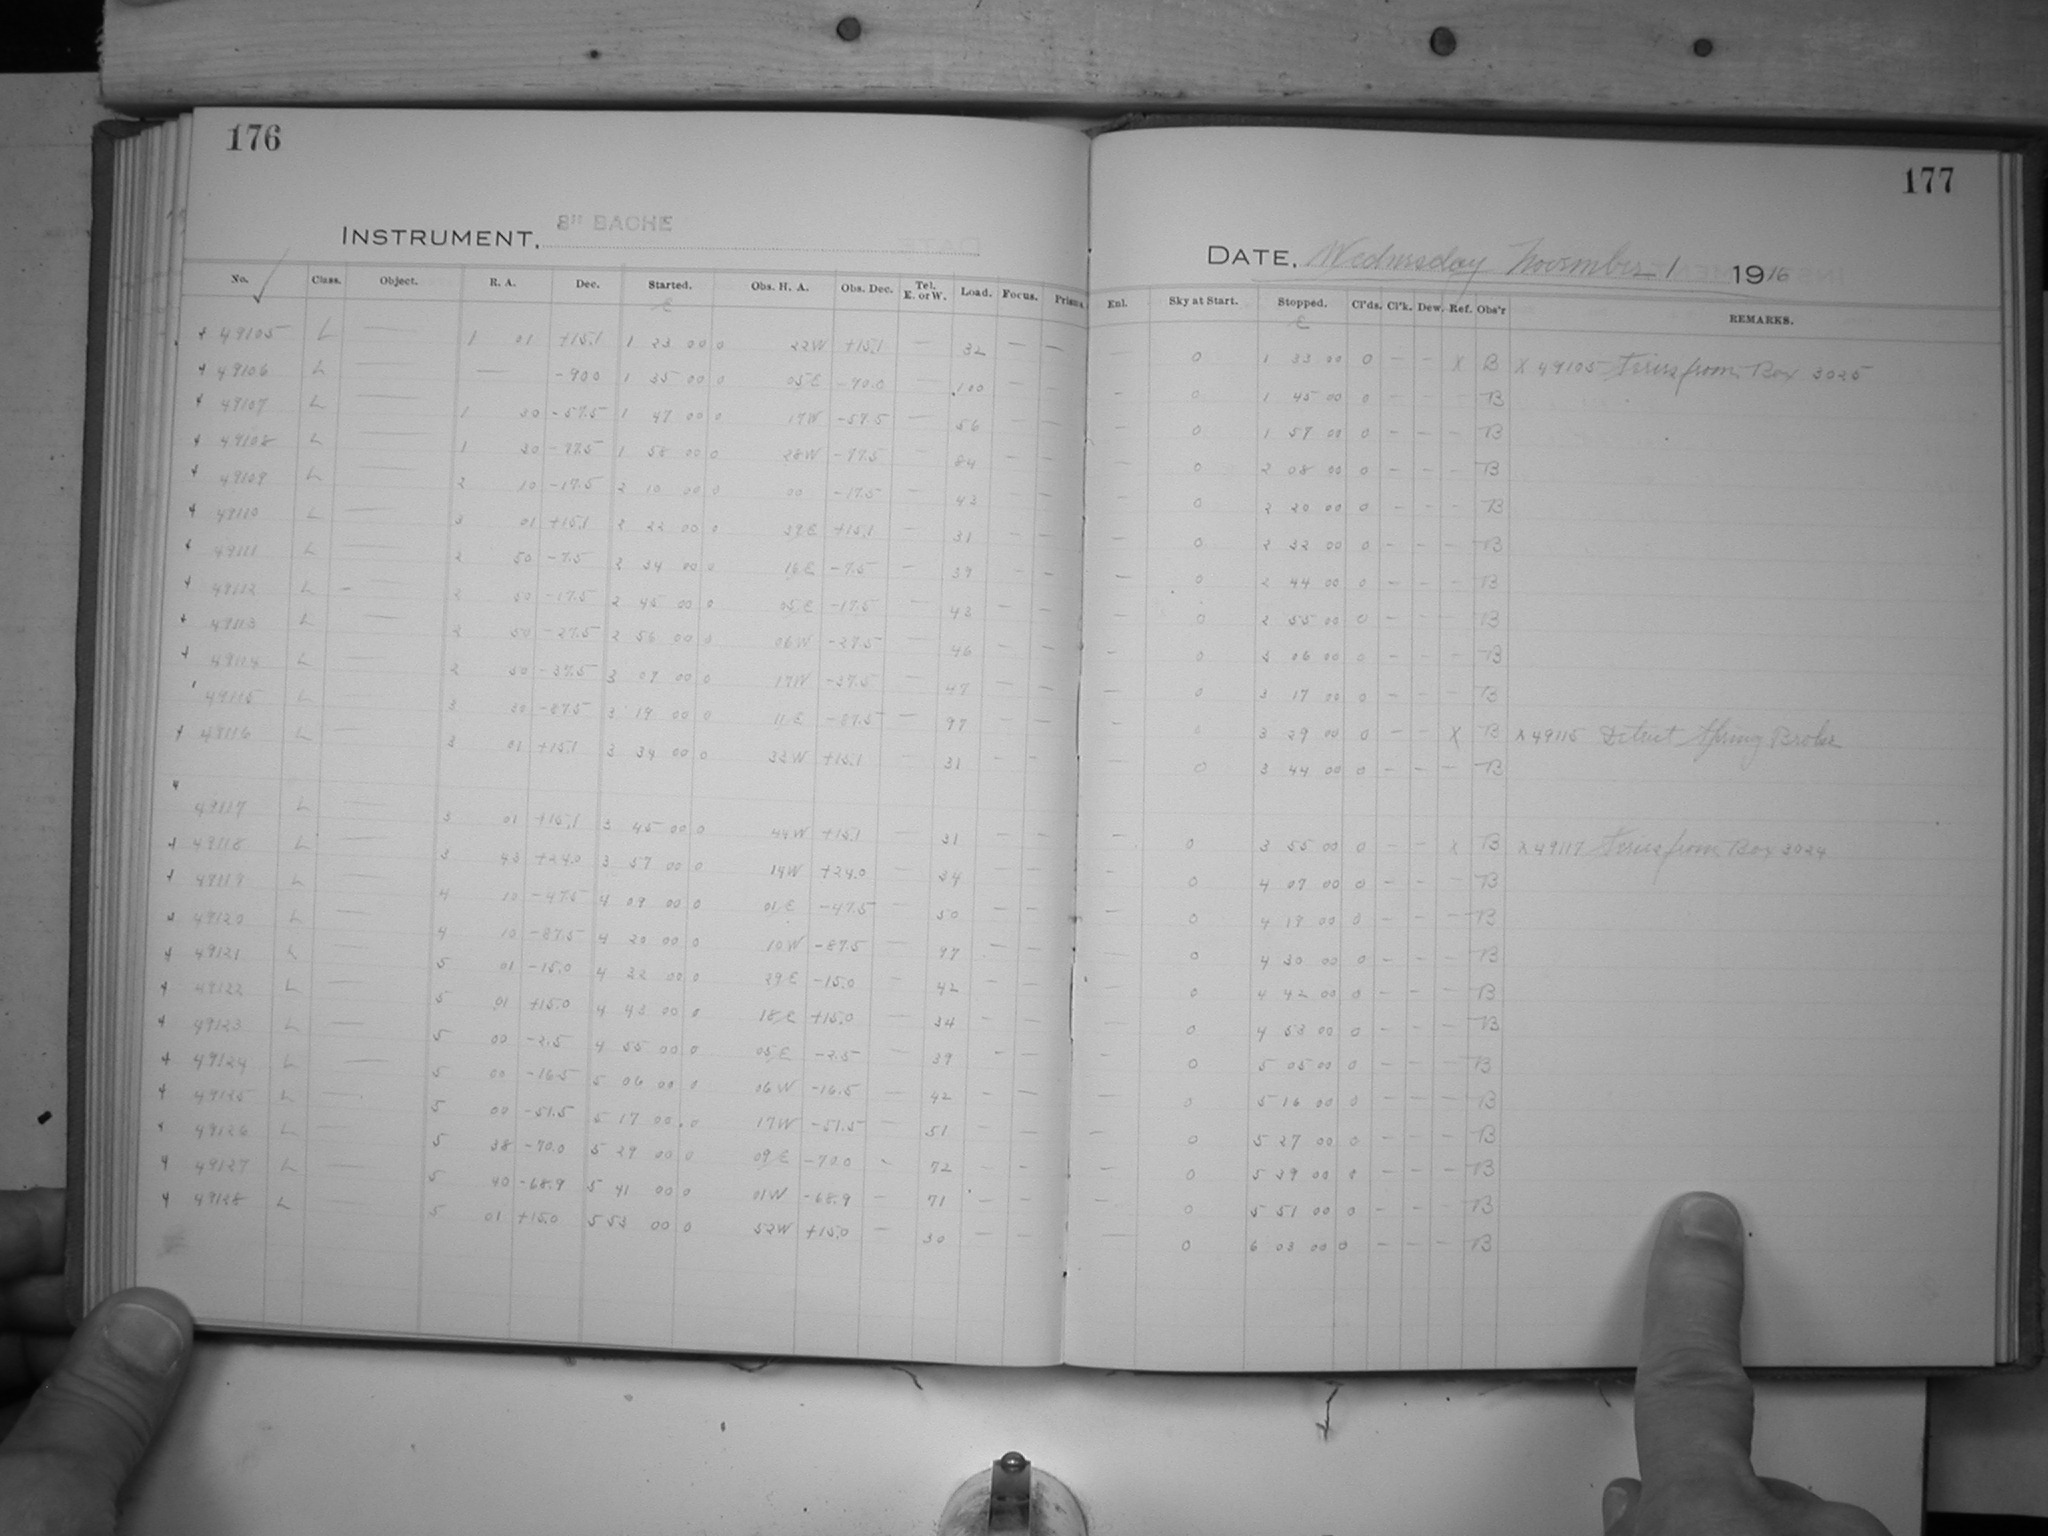 176
177
INSTRUMENT, 8" BACHE
DATE, Wednesday November 1 1916
No. Class. Object. R. A. Dec. Started. Obs. H. A. Obs. Dec. Tel. E. or W. Load. Focus. Prisms. Enl. Sky at Start. Stopped. Cl'ds. Cl'k. Dew. Ref. Obs'r REMARKS.
49105 L — 1 01 +15.1 1 23 00 0 22W +15.1 — 32 — — — 0 1 33 00 0 — — X B X 49105 from Box 3025
49106 L — — -90.0 1 35 00 0 05E -90.0 — 100 — — — 0 1 45 00 0 — — — B
49107 L — 1 30 -57.5 1 47 00 0 17W -57.5 — 56 — — — 0 1 57 00 0 — — — B
49108 L — 1 30 -77.5 1 58 00 0 28W -77.5 — 84 — — — 0 2 08 00 0 — — — B
49109 L — 2 10 -17.5 2 10 00 0 00 -17.5 — 43 — — — 0 2 20 00 0 — — — B
49110 L — 3 01 +15.1 2 22 00 0 39E +15.1 — 31 — — — 0 2 32 00 0 — — — B
49111 L — 2 50 -7.5 2 34 00 0 16E -7.5 — 39 — — — 0 2 44 00 0 — — — B
49112 L — 2 50 -17.5 2 45 00 0 05E -17.5 — 43 — — — 0 2 55 00 0 — — — B
49113 L — 2 50 -27.5 2 56 00 0 06W -27.5 — 46 — — — 0 3 06 00 0 — — — B
49114 L — 2 50 -37.5 3 07 00 0 17W -37.5 — 47 — — — 0 3 17 00 0 — — — B
49115 L — 3 30 -87.5 3 19 00 0 11E -87.5 — 97 — — — 0 3 29 00 0 — — X B X 49115 Detent Spring Broke
49116 L — 3 01 +15.1 3 34 00 0 33W +15.1 — 31 — — — 0 3 44 00 0 — — — B
49117 L — 3 01 +15.1 3 45 00 0 44W +15.1 — 31 — — — 0 3 55 00 0 — — X B X 49117 from Box 3024
49118 L — 3 43 +24.0 3 57 00 0 14W +24.0 — 34 — — — 0 4 07 00 0 — — — B
49119 L — 4 10 -47.5 4 09 00 0 01E -47.5 — 50 — — — 0 4 19 00 0 — — — B
49120 L — 4 10 -87.5 4 20 00 0 10W -87.5 — 97 — — — 0 4 30 00 0 — — — B
49121 L — 5 01 -15.0 4 32 00 0 29E -15.0 — 42 — — — 0 4 42 00 0 — — — B
49122 L — 5 01 +15.0 4 43 00 0 18E +15.0 — 34 — — — 0 4 53 00 0 — — — B
49123 L — 5 00 -2.5 4 55 00 0 05E -2.5 — 39 — — — 0 5 05 00 0 — — — B
49124 L — 5 00 -16.5 5 06 00 0 06W -16.5 — 42 — — — 0 5 16 00 0 — — — B
49125 L — 5 00 -51.5 5 17 00 0 17W -51.5 — 51 — — — 0 5 27 00 0 — — — B
49126 L — 5 38 -70.0 5 29 00 0 09E -70.0 — 72 — — — 0 5 39 00 0 — — — B
49127 L — 5 40 -68.9 5 41 00 0 01W -68.9 — 71 — — — 0 5 51 00 0 — — — B
49128 L — 5 01 +15.0 5 53 00 0 52W +15.0 — 30 — — — 0 6 03 00 0 — — — B